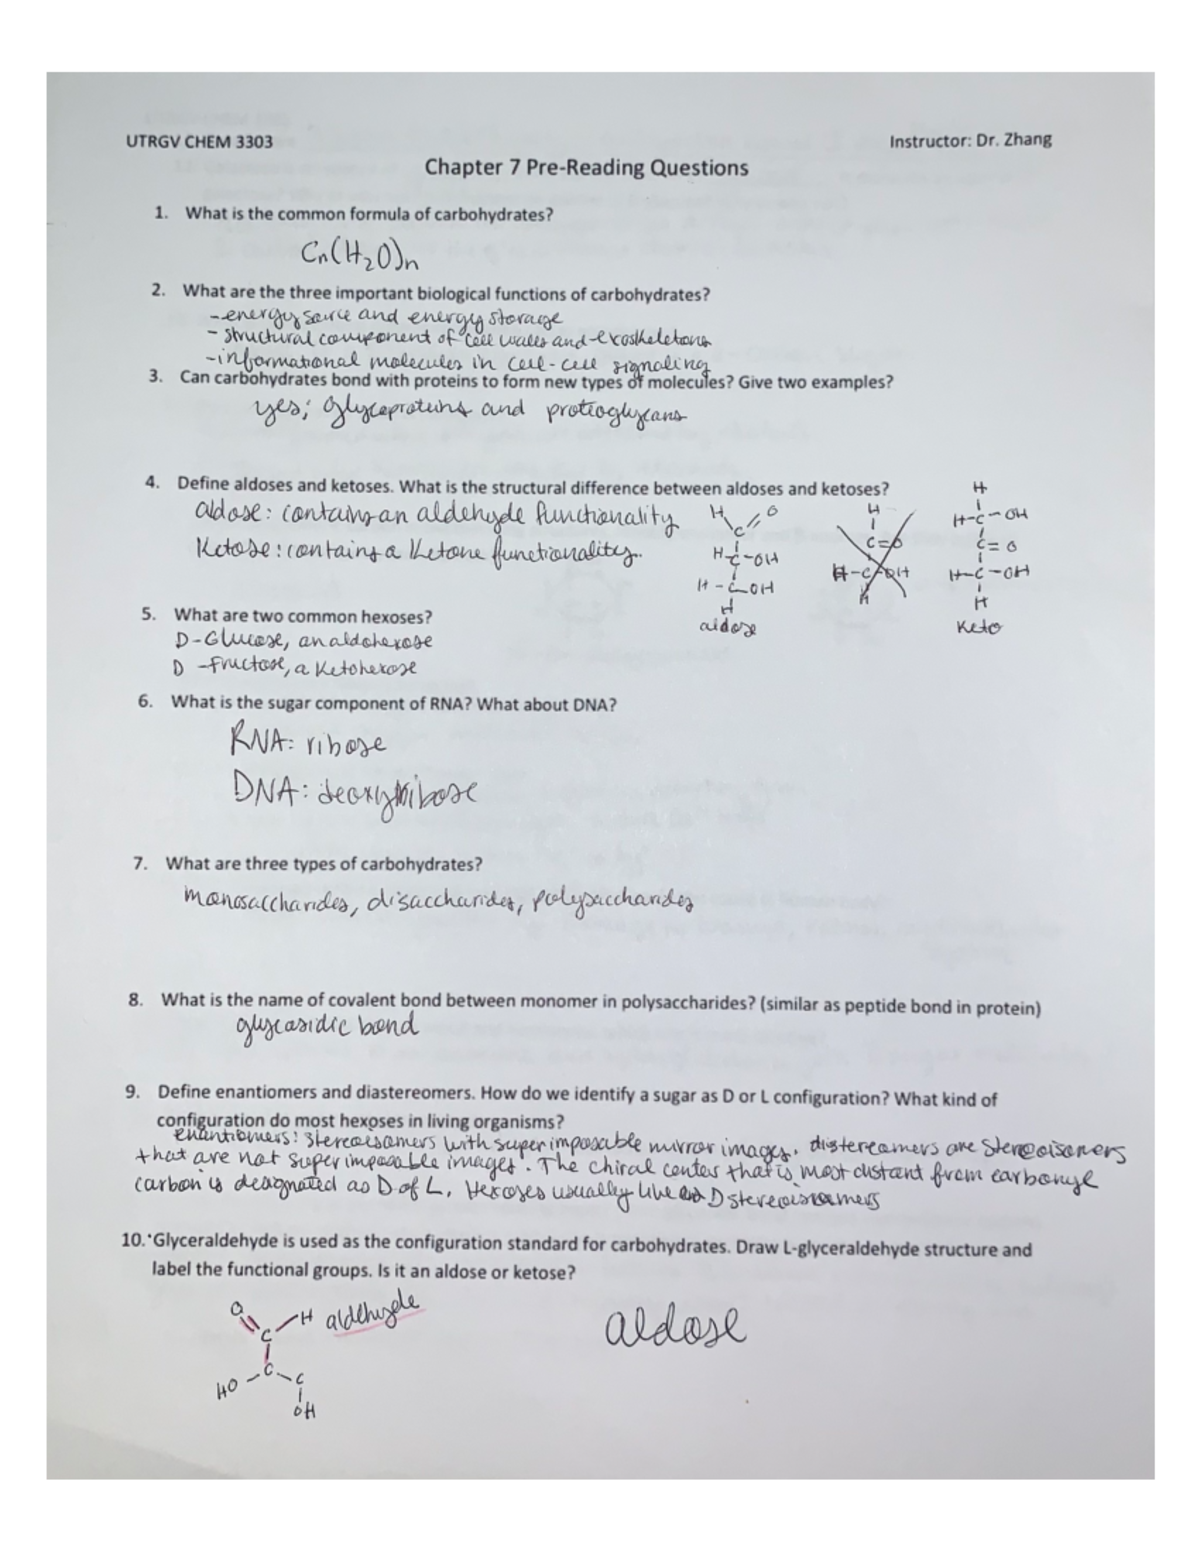 UTRGV CHEM 3303 Instructor: Dr. Zhang
Chapter 7 Pre-Reading Questions
1. What is the common formula of carbohydrates?
Cn(H2O)n
2. What are the three important biological functions of carbohydrates?
-energy source and energy storage
- structural component of cell walls and exoskeletons
-informational molecules in cell-cell signaling
3. Can carbohydrates bond with proteins to form new types of molecules? Give two examples?
yes; glycoproteins and protioglycans
4. Define aldoses and ketoses. What is the structural difference between aldoses and ketoses?
aldose: contains an aldehyde functionality
Ketose: contains a Ketone functionality.
H O
C
H-C-OH
H-C-OH
H
aldose
H
C=O
H-C-OH
H
H
H-C-OH
C=O
H-C-OH
H
Keto
5. What are two common hexoses?
D-Glucose, an aldohexose
D -fructose, a Ketohexose
6. What is the sugar component of RNA? What about DNA?
RNA: ribose
DNA: deoxyribose
7. What are three types of carbohydrates?
monosaccharides, disaccharides, polysaccharides
8. What is the name of covalent bond between monomer in polysaccharides? (similar as peptide bond in protein)
glycosidic bond
9. Define enantiomers and diastereomers. How do we identify a sugar as D or L configuration? What kind of
configuration do most hexoses in living organisms?
enantiomers: stereoisomers with superimposable mirror images. distereomers are stereoisomers
that are not superimposable images. The chiral center that is most distant from carbonyl
carbon is designated as D of L. Hexoses usually like D stereoisomers
10. Glyceraldehyde is used as the configuration standard for carbohydrates. Draw L-glyceraldehyde structure and
label the functional groups. Is it an aldose or ketose?
O
C-H aldehyde
HO-C-C
OH
aldose